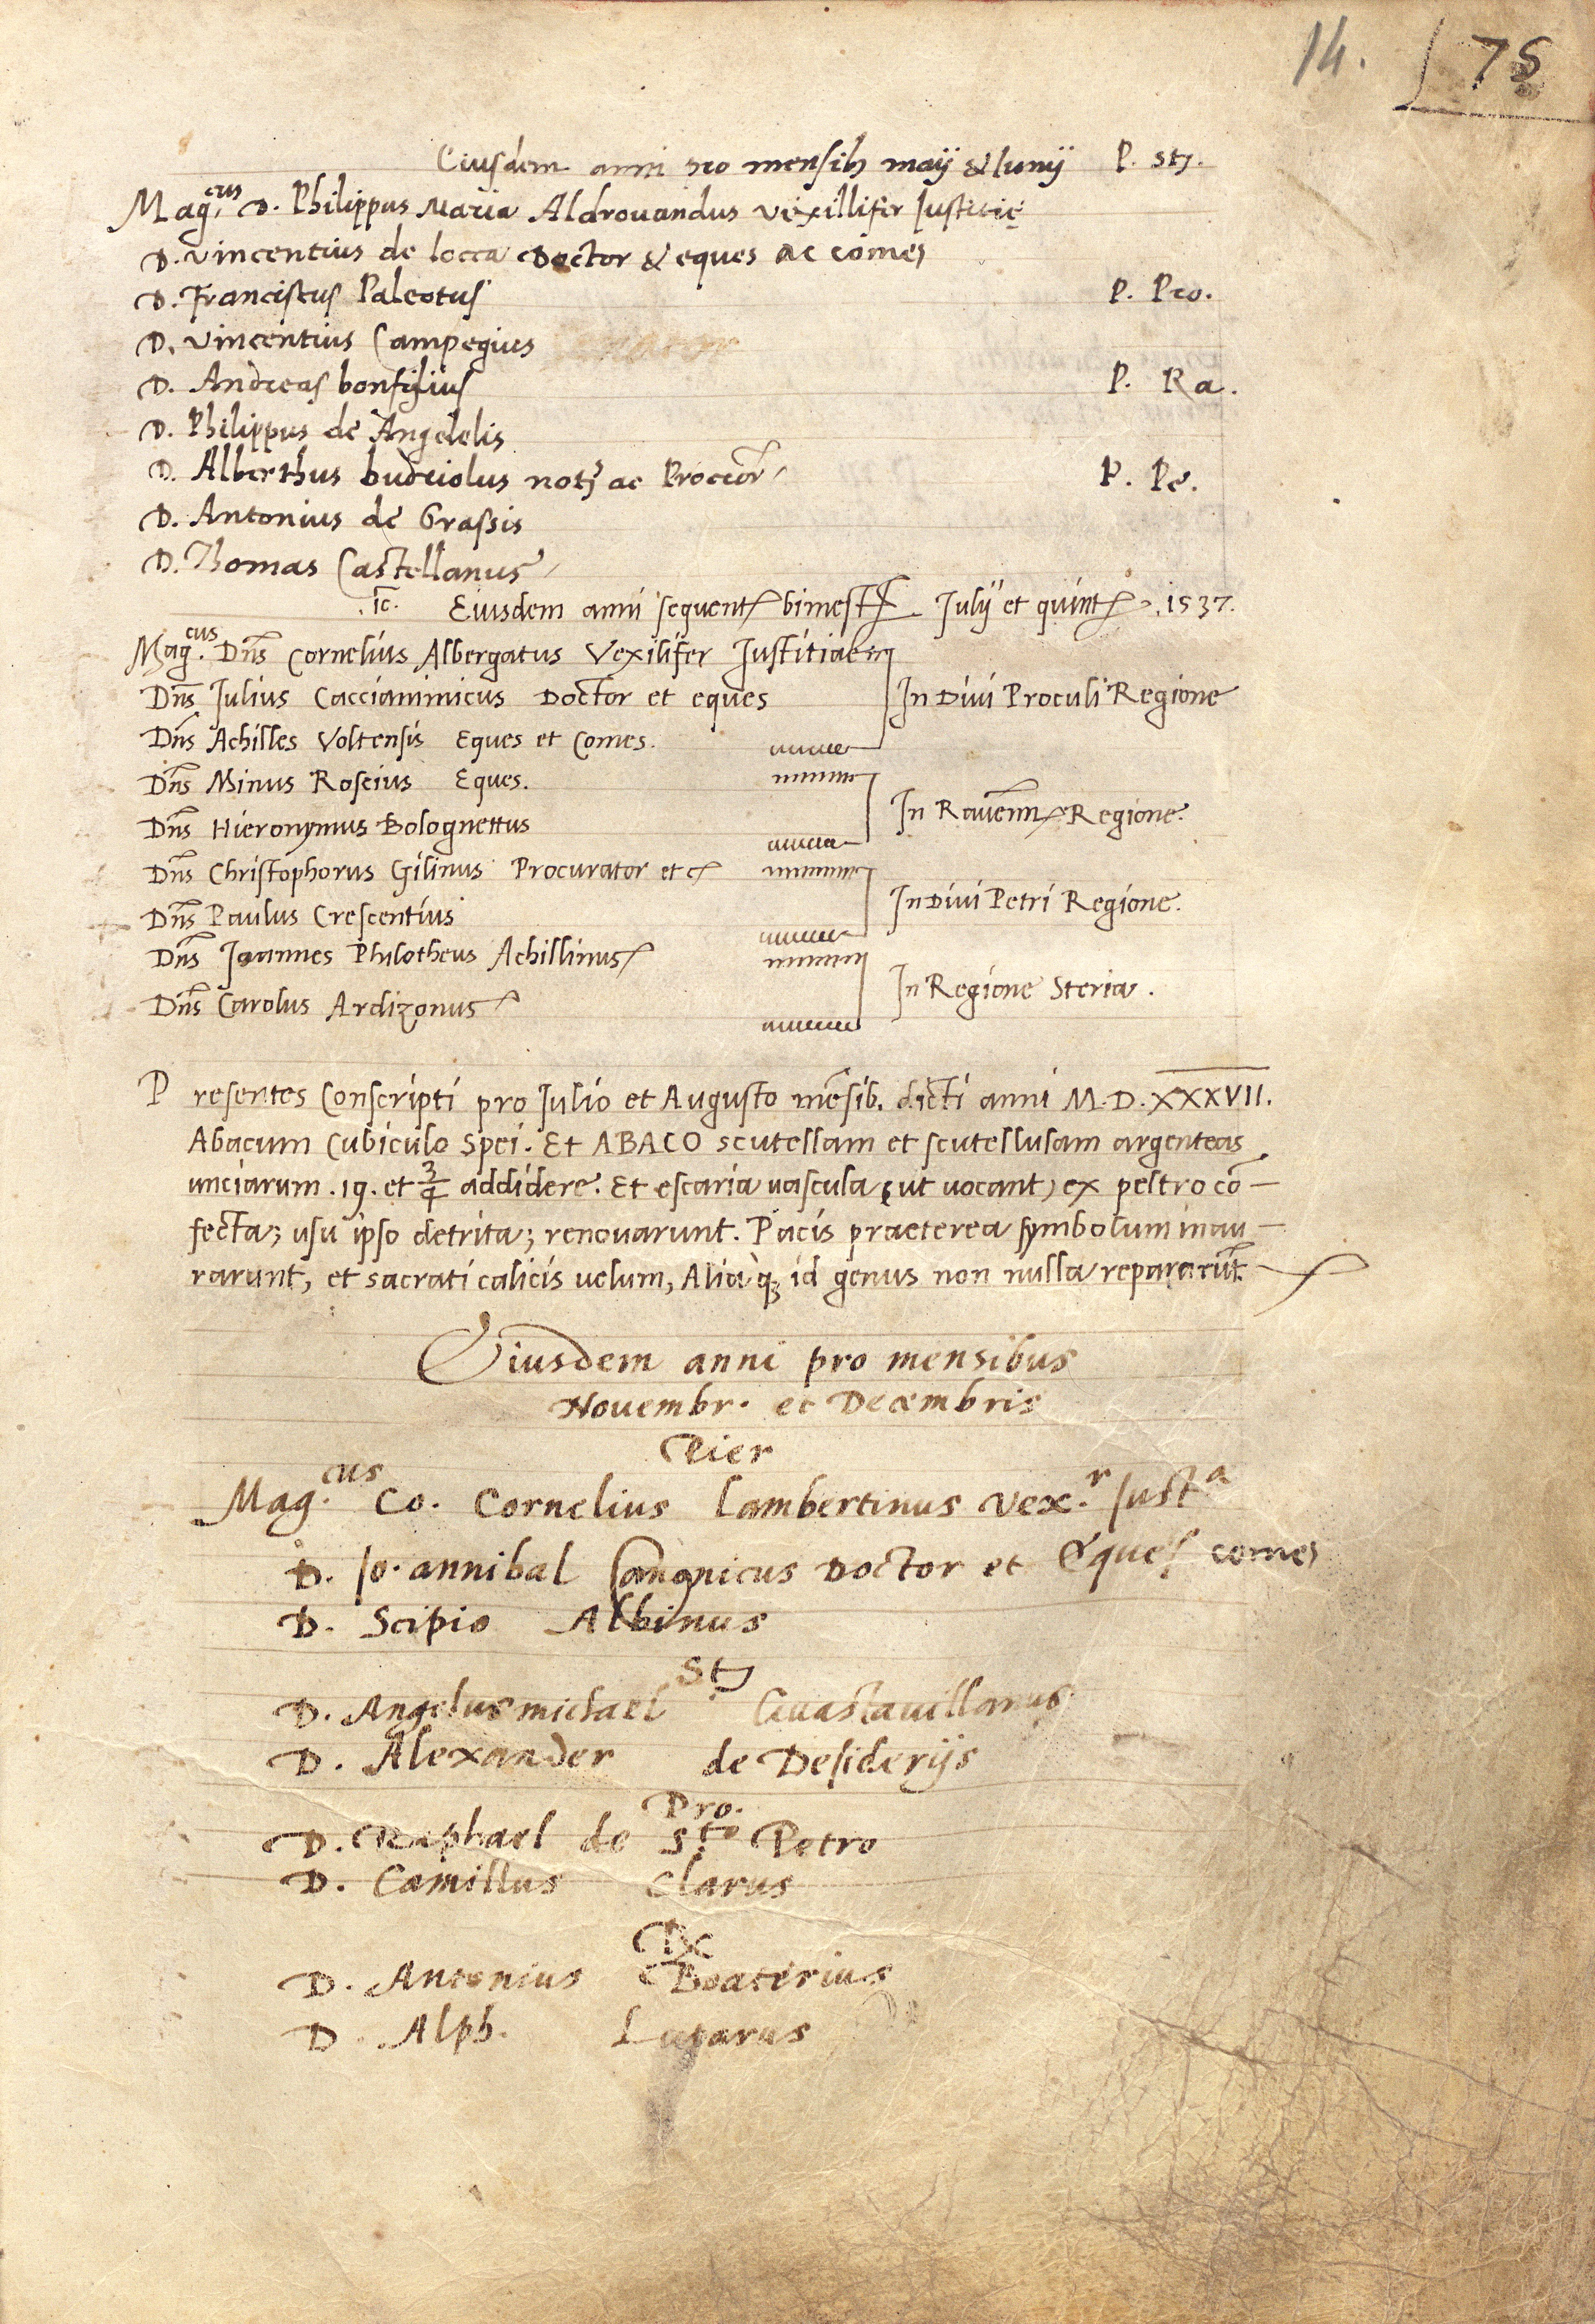 14. 75
Eiusdem anni pro mensib; maÿ & Iunÿ P. stę.
Mag.cus D. Philippus Maria Aldrouandus vexillifer Justitię
D. vincentius de locca Doctor & eques ac comes
D. Franciscus Paleotus P. Pro.
D. vincentius Campegius
D. Andreas bonfiljus P. Ra.
D. Philippus de Angelelis
D. Alberthus budriolus not; ac Procior P. Pe.
D. Antonius de Grassis
D. Thomas Castellanus
.ic. Eiusdem anni sequent bimest Julÿ et quint .1537.
Mag.cus Dns Cornelius Albergatus Vexilifer Justitiae
Dns Julius Cacciaminicus Doctor et eques In Diui Proculi Regione
Dns Achilles Voltensis Eques et Comes.
Dns Minus Roscius Eques.
In Rauenn Regione.
Dns Hieronymus Bolognettus
Dns Christophorus Gilinus Procurator et c
Dns Paulus Crescentius In Diui Petri Regione.
Dns Joannes Philotheus Achillinus
Dns Carolus Ardizonus In Regione Steria.
Presentes Conscripti pro Julio et Augusto mēsib. dicti anni M.D.XXXVII.
Abacum Cubiculo Spei. Et ABACO scutellam et scutellulam argenteas
unciarum .19. et 3/4 addidere. Et escaria uascula (ut uocant) ex peltro cō-
fecta; usu ipso detrita; renouarunt. Pacis praeterea symbolum inau-
rarunt, et sacrati calicis uelum, Aliaq; id genus non nulla repararūt
Eiusdem anni pro mensibus
Nouembr. et Decembris
Pier
Mag.cus Co. Cornelius Lambertinus Vex.r Just.a
D. Jo. annibal Canonicus Doctor et Eques comes
D. Scipio Albinus
St;
D. Angelus michael Guastauillanus
D. Alexander de Desiderijs
Pro.
D. Raphael de S.to Petro
D. Camillus Clarus
D. Antonius Boaterius
D. Alph. Luparus